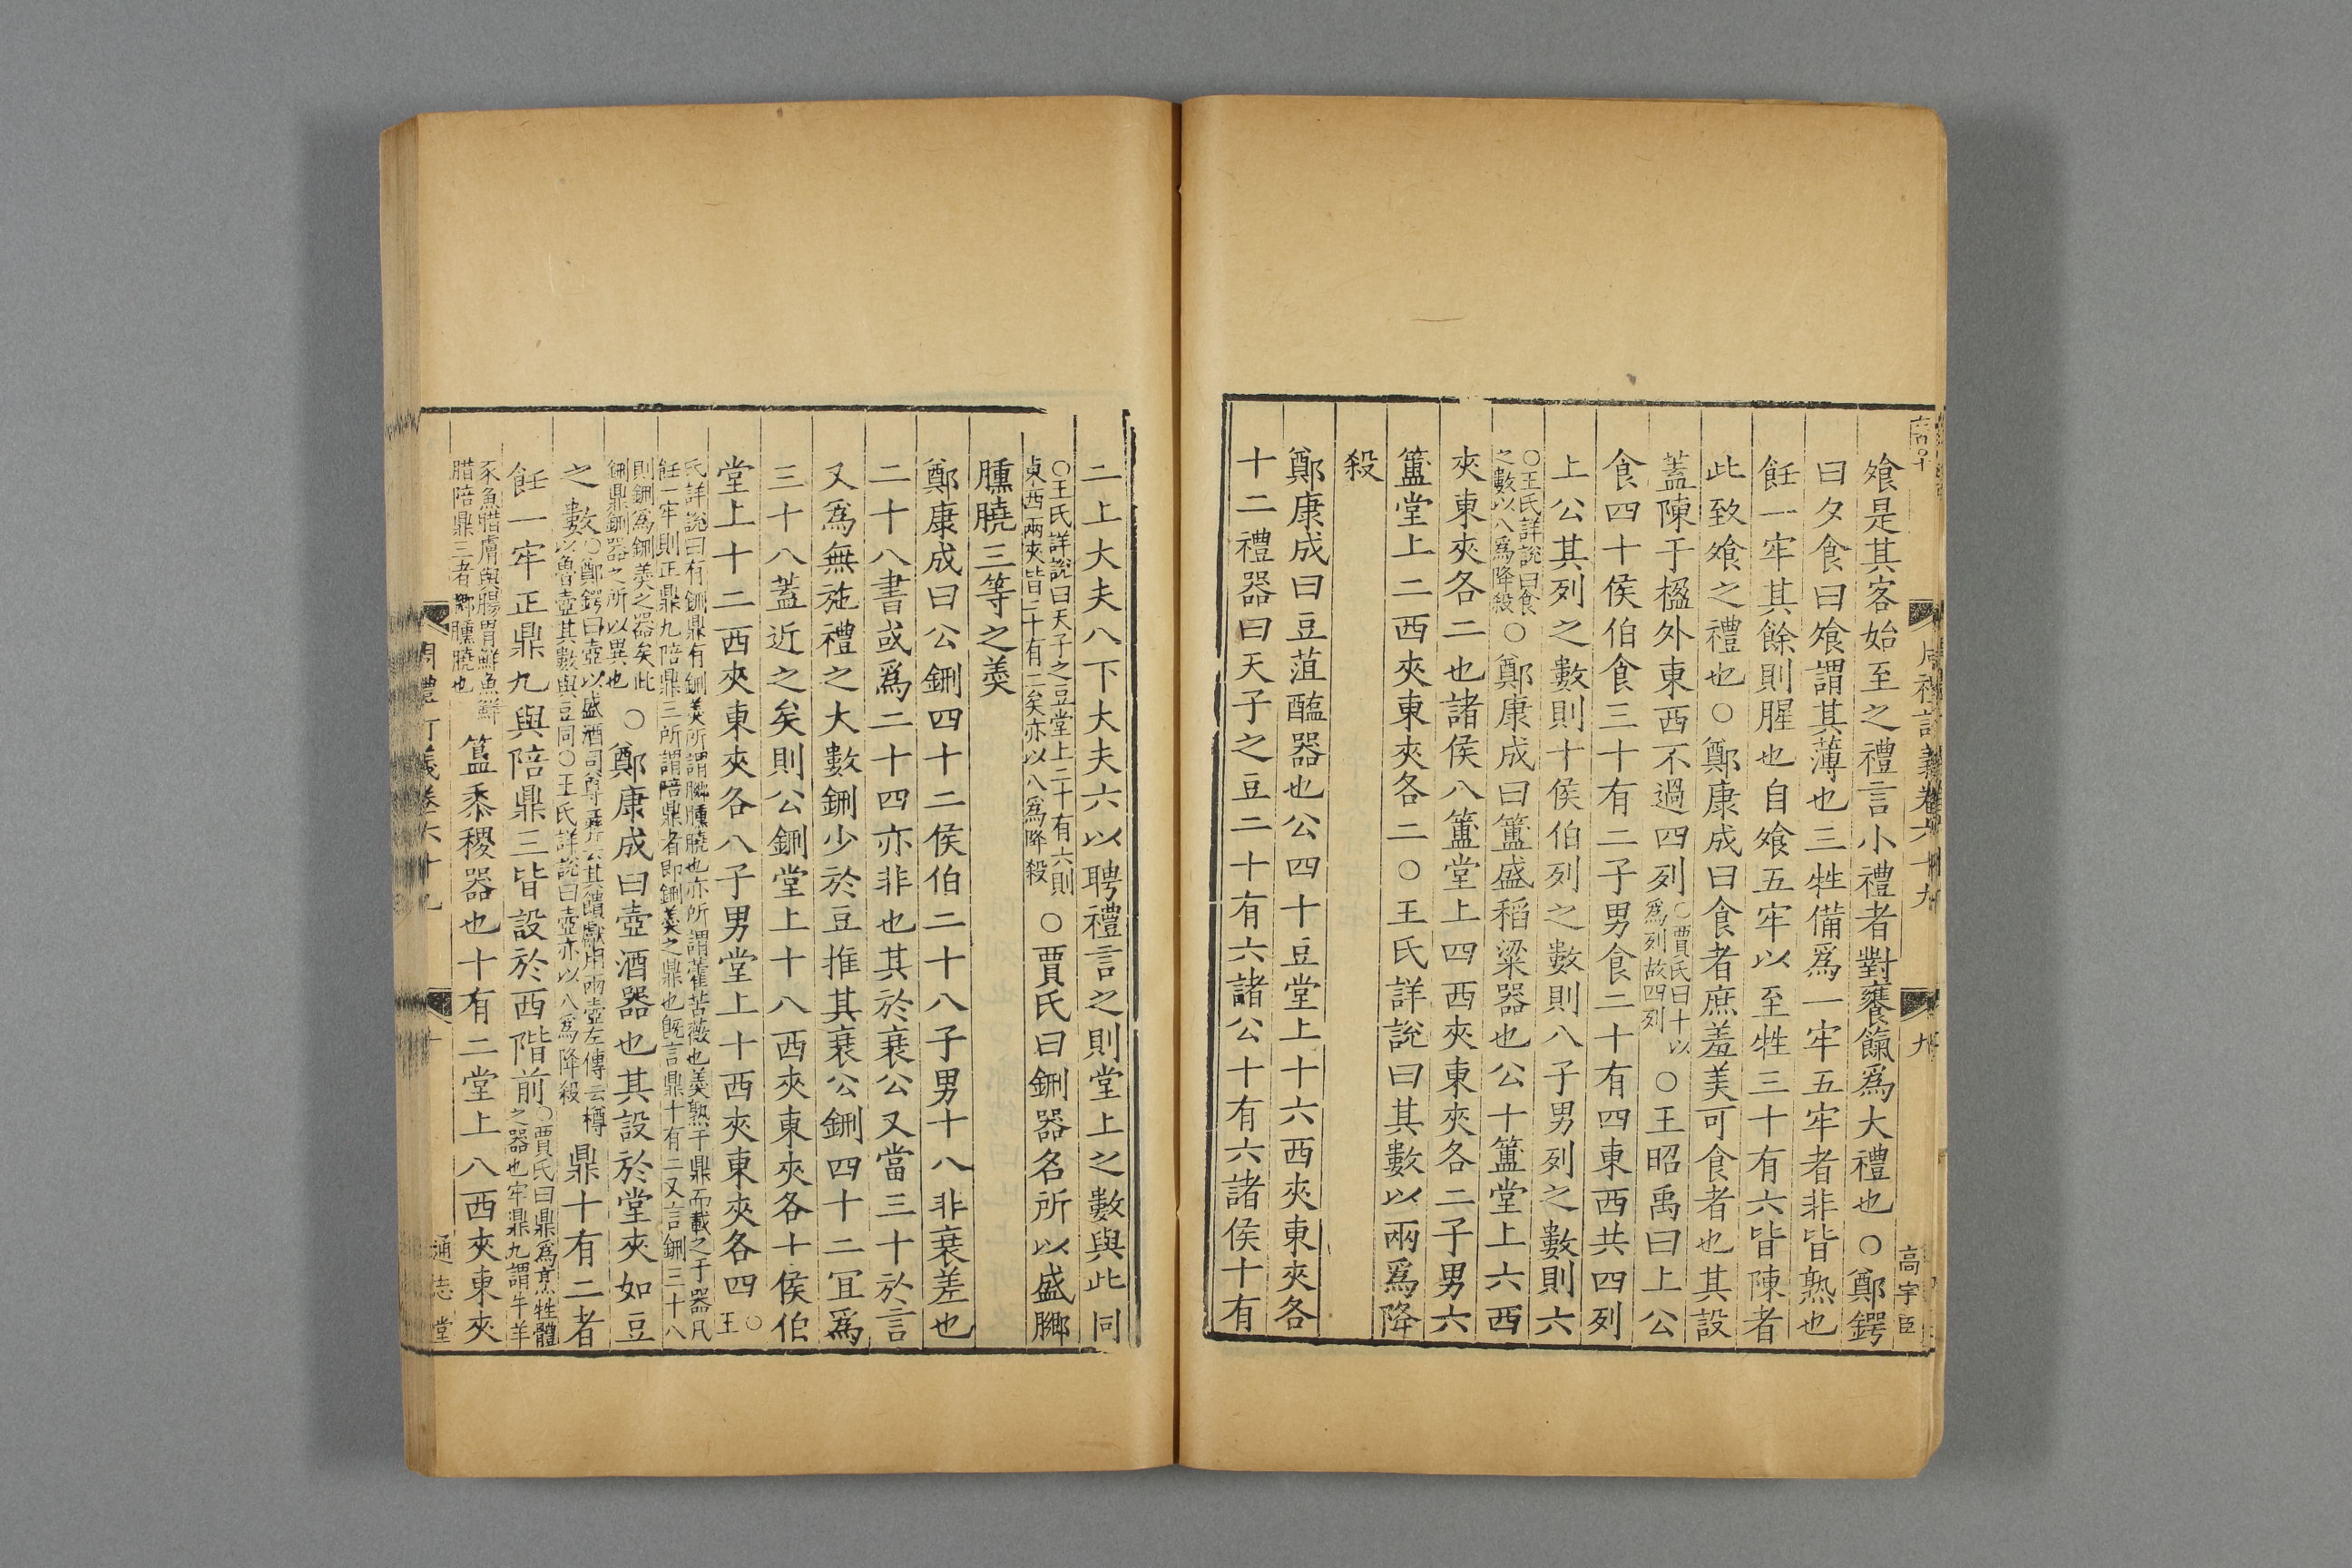 周禮訂義卷六十九
九
高宇臣
飧是其客始至之禮言小禮者對饔餼爲大禮也○鄭鍔
曰夕食曰飧謂其薄也三牲備爲一牢五牢者非皆熟也
飪一牢其餘則腥也自飧五牢以至牲三十有六皆陳者
此致飧之禮也○鄭康成曰食者庶羞美可食者也其設
蓋陳于楹外東西不過四列○賈氏曰十以爲列故四列○王昭禹曰上公
食四十侯伯食三十有二子男食二十有四東西共四列
上公其列之數則十侯伯列之數則八子男列之數則六
○王氏詳說曰食之數以八爲降殺○鄭康成曰簠盛稻粱器也公十簠堂上六西
夾東夾各二也諸侯八簠堂上四西夾東夾各二子男六
簠堂上二西夾東夾各二○王氏詳說曰其數以兩爲降
殺
鄭康成曰豆菹醢器也公四十豆堂上十六西夾東夾各
十二禮器曰天子之豆二十有六諸公十有六諸侯十有
二上大夫八下大夫六以聘禮言之則堂上之數與此同
○王氏詳說曰天子之豆堂上二十有六則東西兩夾皆二十有二矣亦以八爲降殺○賈氏曰鉶器名所以盛膷
臐膮三等之羹
鄭康成曰公鉶四十二侯伯二十八子男十八非衰差也
二十八書或爲二十四亦非也其於衰公又當三十於言
又爲無施禮之大數鉶少於豆推其衰公鉶四十二宜爲
三十八蓋近之矣則公鉶堂上十八西夾東夾各十侯伯
堂上十二西夾東夾各八子男堂上十西夾東夾各四○王
氏詳說曰有鉶鼎有鉶羹所謂膷臐膮也亦所謂藿苦薇也羹熟于鼎而載之于器凡
飪一牢則正鼎九陪鼎三所謂陪鼎者即鉶羹之鼎也旣言鼎十有二又言鉶三十八
則鉶爲鉶羹之器矣此鉶鼎鉶器之所以異也○鄭康成曰壺酒器也其設於堂夾如豆
之數○鄭鍔曰壺以盛酒司尊彝云其饋獻用兩壺左傳云樽以魯壺其數與豆同○王氏詳說曰壺亦以八爲降殺鼎十有二者
飪一牢正鼎九與陪鼎三皆設於西階前○賈氏曰鼎爲烹牲體之器也牢鼎九謂牛羊
豕魚腊膚與腸胃鮮魚鮮腊陪鼎三者膷臐膮也簋黍稷器也十有二堂上八西夾東夾
周禮訂義卷六十九
十
通志堂